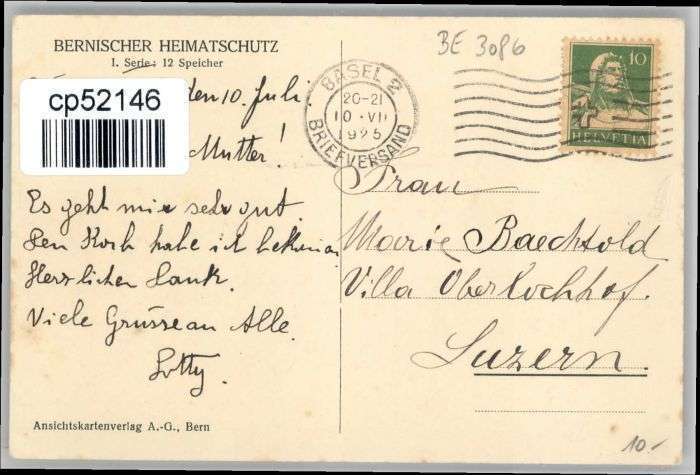 BERNISCHER HEIMATSCHUTZ
I. Serie: 12 Speicher
den 10. Juli.
cp52146
Mutter!
Es geht mir sehr gut.
Den Korb habe ich bekommen
Herzlichen Dank.
Viele Grüsse an Alle.
Lotty.
Ansichtskartenverlag A.-G., Bern
BE 3086
BASEL 2
20-21
10.VII
1925
BRIEFVERSAND
10
HELVETIA
Frau
Marie Baechtold
Villa Oberlochhof.
Luzern.
10.-